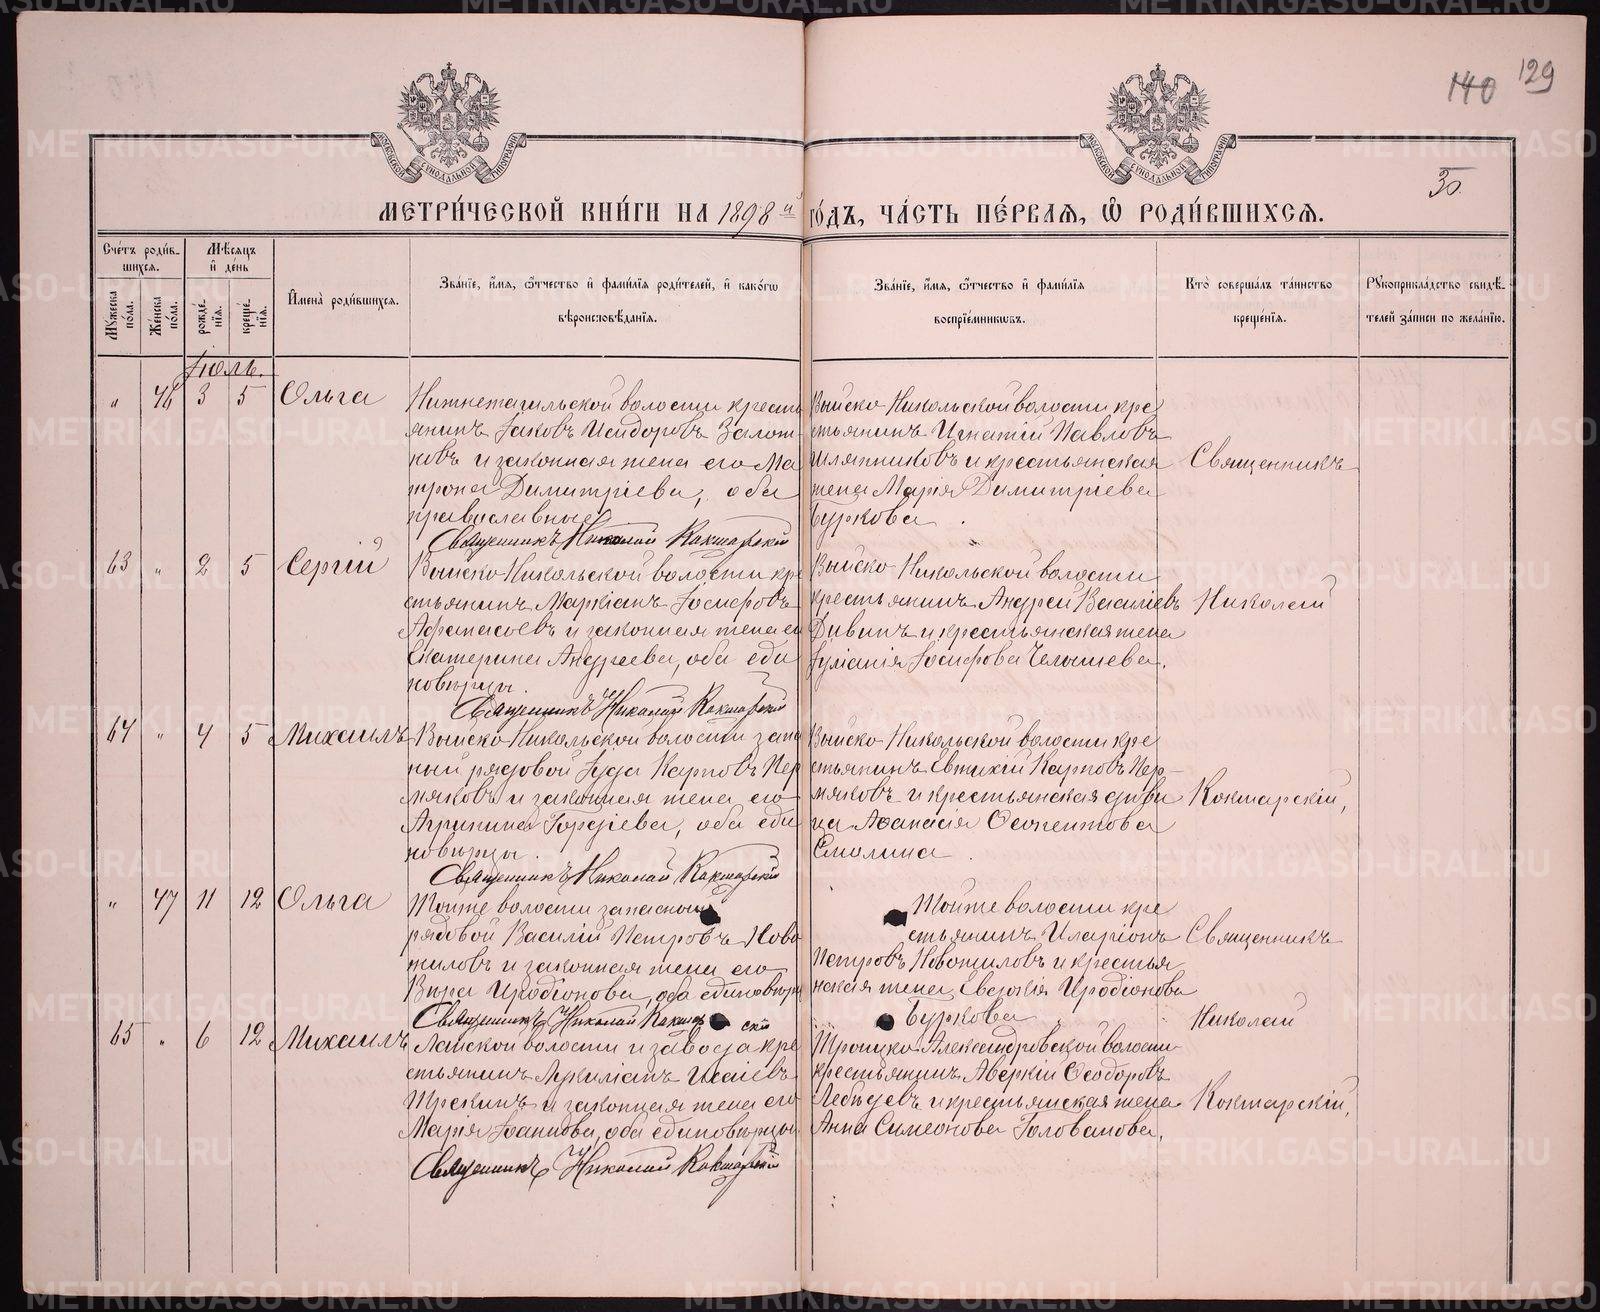 140 129
30.
МЕТРИ́ЧЕСКОЙ КНИ́ГИ НА 1898й ГО́ДЪ, ЧА́СТЬ ПЕ́РВАЯ, Ѡ РОДИ́ВШИХСЯ.
Сче́тъ роди́в-
шихся.
Мѣ́сяцъ
и҆ день
Мꙋжеска по́ла.
Же́нска по́ла.
рожде́-нїя.
креще́-нїя.
И҆мена̀ роди́вшихся.
Зва́нїе, и҆́мя, ѻ҆́тчество и҆ фами́лїя роди́телей, и҆ како́гѡ
вѣроисповѣ́данїя.
Зва́нїе, и҆́мя, ѻ҆́тчество и҆ фами́лїя
воспрїе́мникѡвъ.
Кто̀ соверша́лъ та́инство
креще́нїя.
Рꙋкоприкла́дство свидѣ́-
телей за́писи по жела́нїю.
Іюль.
" 46 3 5 Ольга
Нижнетагильской волости кресть
янинъ Іаковъ Исидоровъ Залож
новъ и законная жена его Ма
трона Димитріева, оба
православные
Священникъ Николай Кокшарскій
Выйско-Никольской волости кре
стьянинъ Игнатій Павловъ
Шляпниковъ и крестьянская
жена Марія Димитріева
Буркова.
Священникъ
63 " 2 5 Сергій
Выйско-Никольской волости кре
стьянинъ Маркіанъ Іосифовъ
Афанасьевъ и законная жена его
Екатерина Андреева, оба еди
новѣрцы.
Священникъ Николай Кокшарскій
Выйско-Никольской волости
крестьянинъ Андрей Васильевъ
Дивинъ и крестьянская жена
Іуліанія Іосифова Челышева.
Николай
64 " 4 5 Михаилъ
Выйско-Никольской волости запа
ный рядовой Іуда Карповъ Пер
мяковъ и законная жена его
Агрипина Гордіева, оба еди
новѣрцы.
Священникъ Николай Кокшарскій
Выйско-Никольской волости кре
стьянинъ Евтихій Карповъ Пер-
мяковъ и крестьянская дѣви
ца Аѳанасія Ѳеопентова
Смолина.
Кокшарскій,
" 47 11 12 Ольга
Тойже волости запасный
рядовой Василій Петровъ Ново
жиловъ и законная жена его
Вѣра Иродіонова, оба единовѣрцы
Священникъ Николай Кокшарскій
Тойже волости кре
стьянинъ Иларіонъ
Петровъ Новожиловъ и крестья
нская жена Евдокія Иродіонова
Буркова.
Священникъ
Николай
65 " 6 12 Михаилъ
Лайской волости и завода кре
стьянинъ Лукиліанъ Исаіевъ
Трескинъ и законная жена его
Марія Іоаннова, оба единовѣрцы
Священникъ Николай Кокшарскій
Троицко-Александровской волости
крестьянинъ Аверкій Ѳеодоровъ
Лебедевъ и крестьянская жена
Анна Симеонова Голованова.
Кокшарскій,